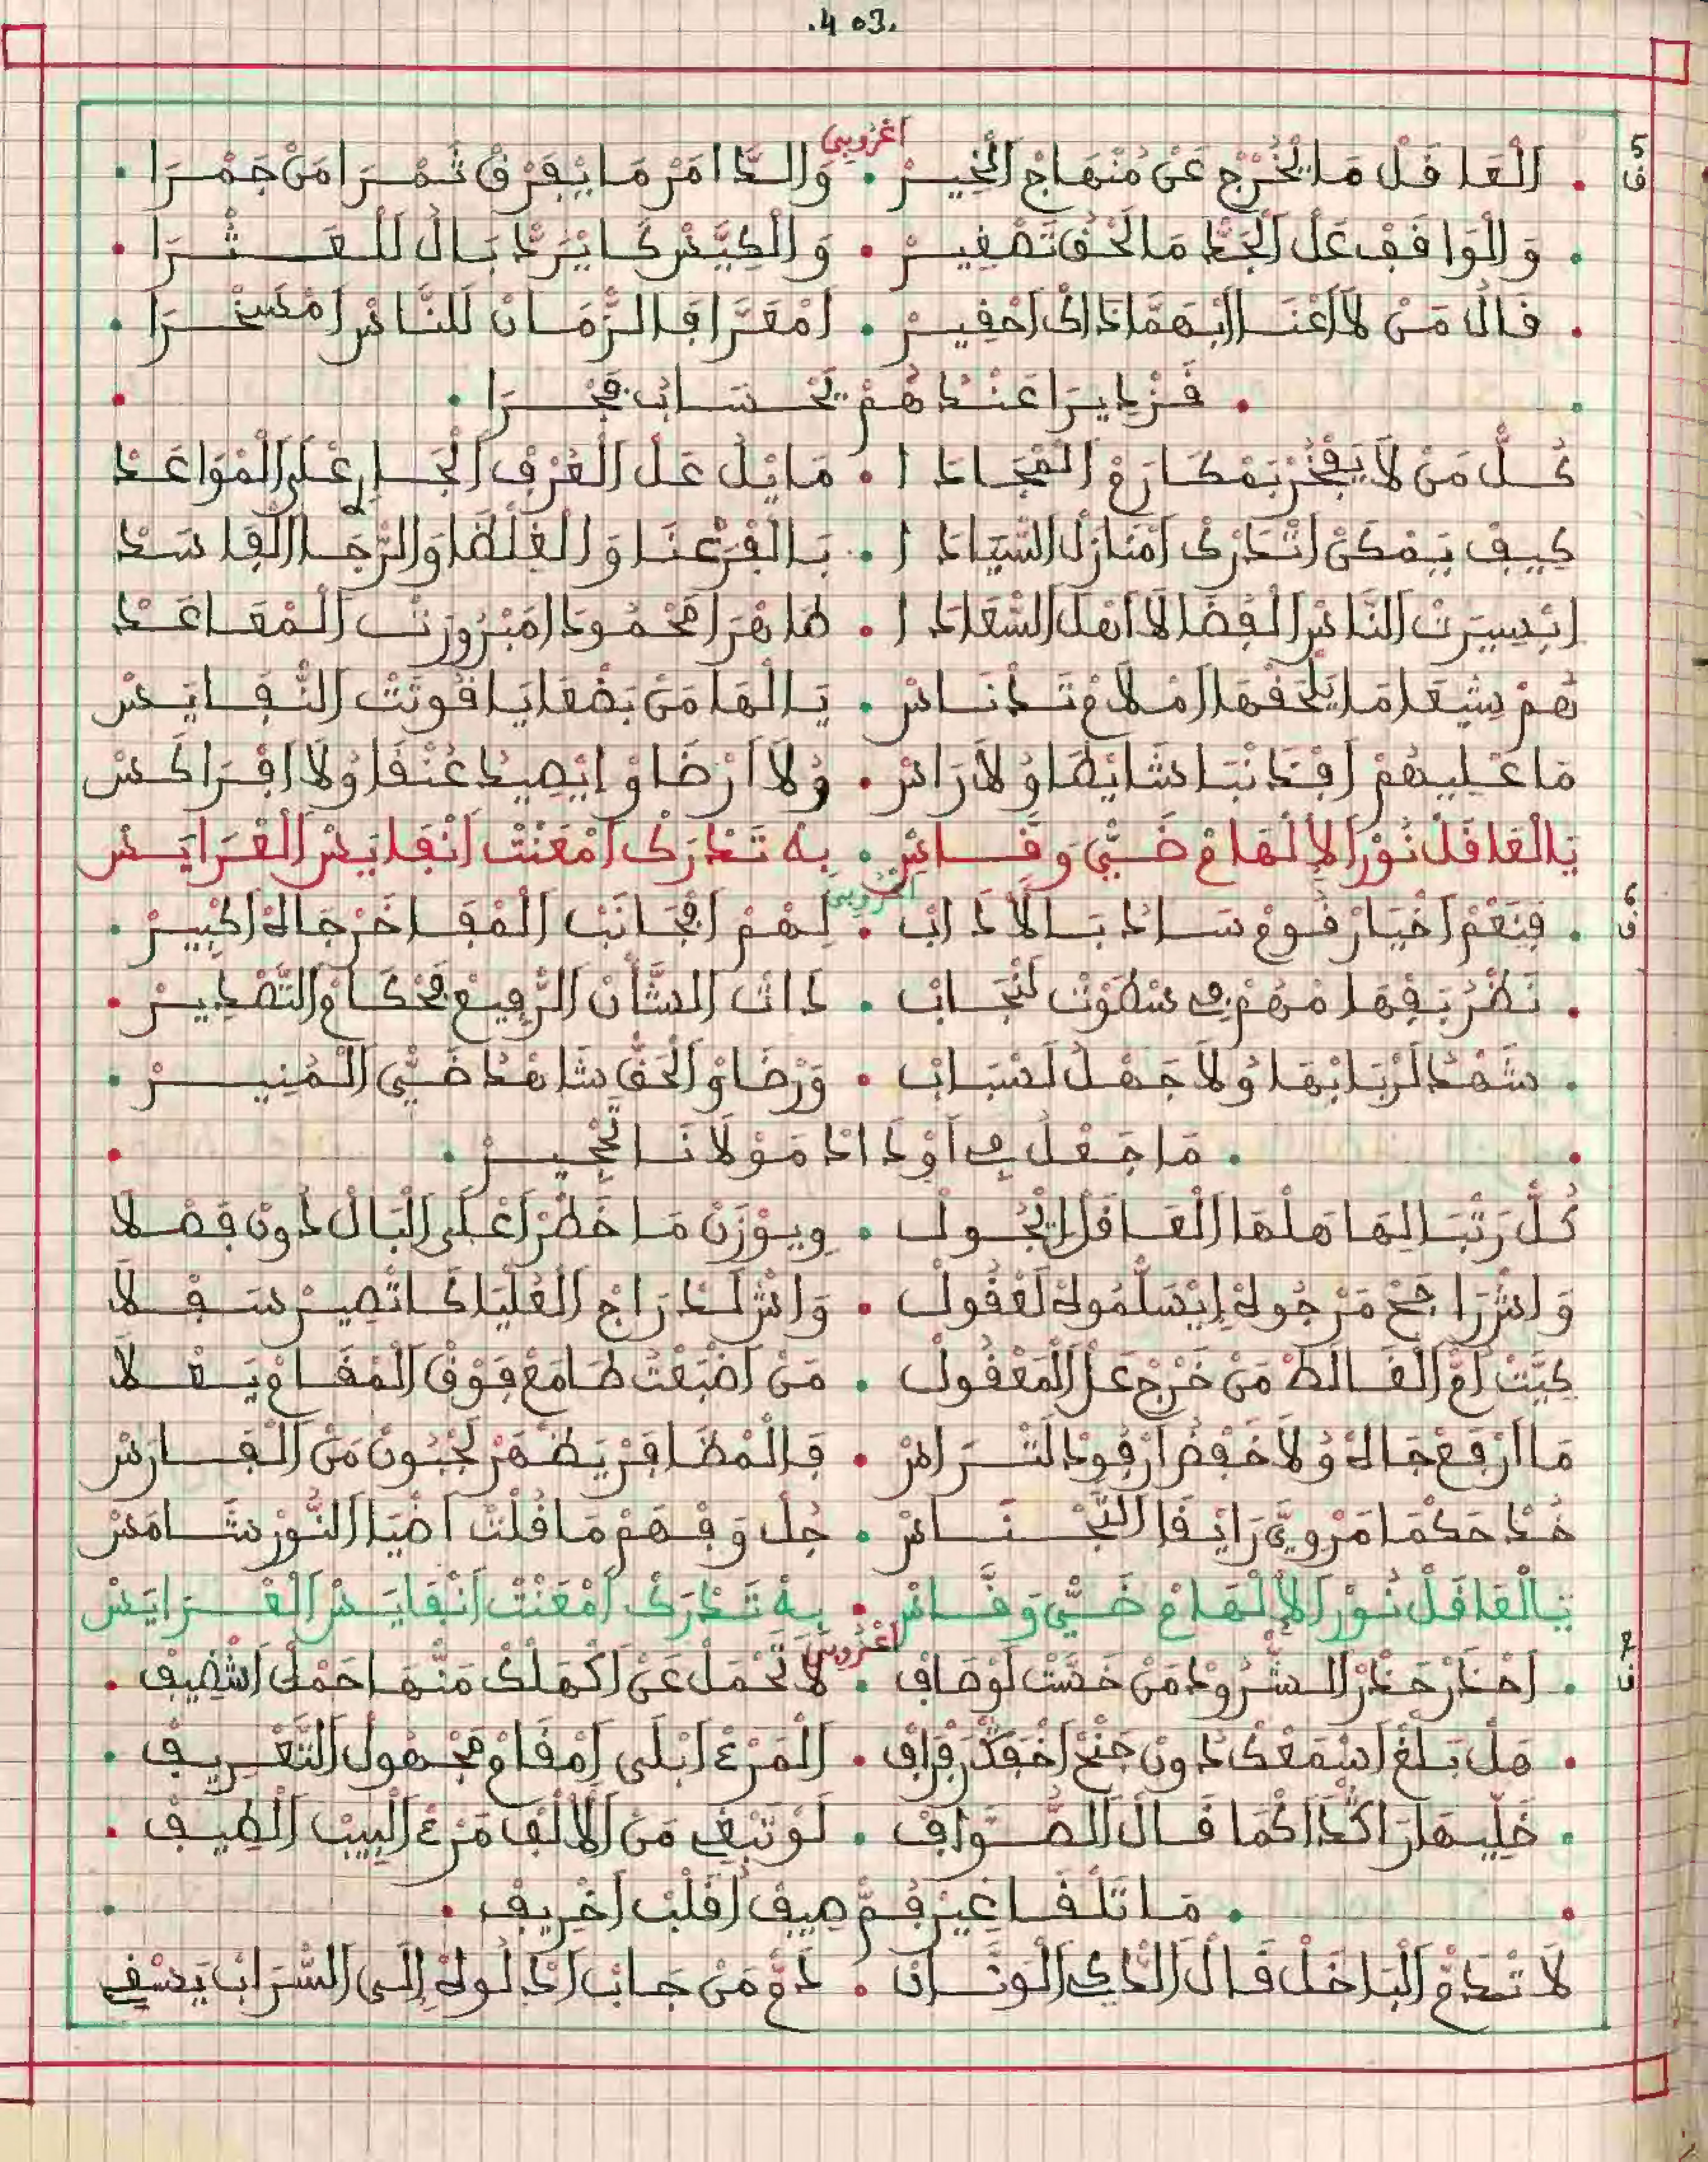 .403.
اغزوبي
ق5 . الْعَاقَلْ مَا يَخْرُجْ عَنْ مُنْهَاجْ الْخِيرْ . وَالدَّامَرْ مَا يْفَرَّقْ تَمْرَا مَنْ جَمْرَا .
. وَالْوَاقَفْ عَلْ الْجَدّْ مَا لَحْقُ تَصْغِيرْ . وَالْكِيَّسْ كَا يْرَدّْ بَالُ لَلْعَثْرَا .
. قَالْ مَنْ لَا اعْنَا ابْهَمَّا ذَاكْ احْقِيرْ . امْعَرَّا فَالزّْمَانْ لَلنَّاسْ امْسَخْرَا .
. قَزْدِيرَا عَنْدْهُمْ بَحْسَابْ فَجْرَا .
كُلّْ مَنْ لَا يَفْخَرْ بَمْكَارَمْ الْمْجَادَا . مَايَلْ عَلْ الْعُرْفْ الْجَارِي عْلَى الْمْوَاعَدْ
كِيفْ يَمْكَنْ اتْدَرْكْ امْنَازَلْ السّْيَادَا . بَالْفَرْعْنَا وَالْغَلْظَا وَالرّْجَا الْفَاسَدْ
ابْسِيرْتْ النَّاسْ الْفُضَالَا اهْلْ السّْعَادَا . ظَاهْرَا مَحْمُودَا مَبْرُورْتْ الْمْقَاعَدْ
هُمْ شِيعَا مَا يَلْحَقْهَا امْلَامْ تَدْنَاسْ . يَالْهَا مَنْ بَضْعَا يَاقُوتْتْ النّْفَايَسْ
مَا عْلِيهُمْ افْذَنْبَا شَايْطَا وُلَا رَاسْ . وُلَا ارْضَاوْ ايْصِيدْ عُنْقَا وُلَا افْرَاكَسْ
يَالْعَاقَلْ نُورْ الْإِلْهَامْ ضَيُّ وَقَّاسْ . بِهْ تَدْرَكْ امْعَنْتْ انْفَايَسْ الْعْرَايَسْ
اغزوبي
ق6 . فِنَعْمْ اخْيَارْ قَومْ سَادْ بَالْآدَابْ . لِهُمْ افْجَانَبْ الْمْفَاخَرْ جَاهْ اكْبِيرْ .
. نَظْرُ بَفْهَامْهُمْ في سَطْوَتْ لَنْجَابْ . ذَاتْ الشَّأْنْ الرّْفِيعْ فَحْكَامْ التَّصْدِيرْ .
. شَهْدْ لَرْبَابْهَا وُلَا جَهْلْ لَسْبَابْ . وَرْضَاوْ الْحَقّْ شَاهْدْ ضَيُّ الْمُنِيرْ .
. مَا جَعْلُ في اوْدَادْ مَوْلَانَا تَخْيِيرْ .
كُلّْ رَتْبَا لِهَا هَلْهَا الْعَاقَلْ ايْجُولْ . وِيوْزَنْ مَا خْطَرْ اعْلَى الْبَالْ دُونْ فَصْلَا
وَاشْ رَاجَحْ مَرْجُوهْ ايْسَلّْمُوهْ لَعْقُولْ . وَاشْ لَدْرَاجْ الْعُلْيَا كَاتْصِيرْ سَفْلَا
كِيَّتْ امّْ الْغَالَطْ مَنْ خْرَجْ عَلْ الْمَعْقُولْ . مَنْ اضْبَعْتُ طَامَعْ فَوْقْ الْمْقَامْ يَعْلَا
مَا ارْفَعْ جَاهْ وُلَا خَفْضْ ارْقُودْ لَتْرَامَسْ . فَالْمْظَافَرْ يَظْهَرْ لَجْبُونْ مَنْ الْفَارَسْ
خُدْ حَكْمَا مَرْوِيَّ رَايْقَا التَّجْنَاسْ . جُلْ وَفْهَمْ مَا قُلْتْ اضْيَا النُّورْ شَامَسْ
يَالْعَاقَلْ نُورْ الْإِلْهَامْ ضَيُّ وَقَّاسْ . بِهْ تَدْرَكْ امْعَنْتْ انْفَايَسْ الْعْرَايَسْ
اغزوبي
ق7 . احْذَرْ حَذْرْ الشّْرُودْ مَنْ خَسّْتْ لَوْصَافْ . لَا تَحْمَلْ عَنْ اكْهَلْكْ مَنْهَا حَمْلْ اثْضِيفْ .
. هَلْ بَلْغْ اسْمَعْكْ دُونْ جَنْحْ رَفْرَافْ . الْمَرْءْ ابْلَى امْقَامْ مَجْهُولْ التَّعْرِيفْ .
. خَلِّيهَا رَاكْدَا كْمَا قَالْ الصَّوَّافْ . لَوْ تَبْغِي مَنْ الْألْفْ مَرْءْ الْبِيبْ الْطِيفْ .
. مَا تَلْقَا غِيرْ قُمّْ صِيفْ اقْلَبْ اخْرِيفْ .
لَا تْدَمّْ الْبَاخَلْ قَالْ الذْكِي الْوَزَّانْ . دَمّْ مَنْ جَابْ ادْلُوهْ إِلَى السّْرَابْ يَسْقِي